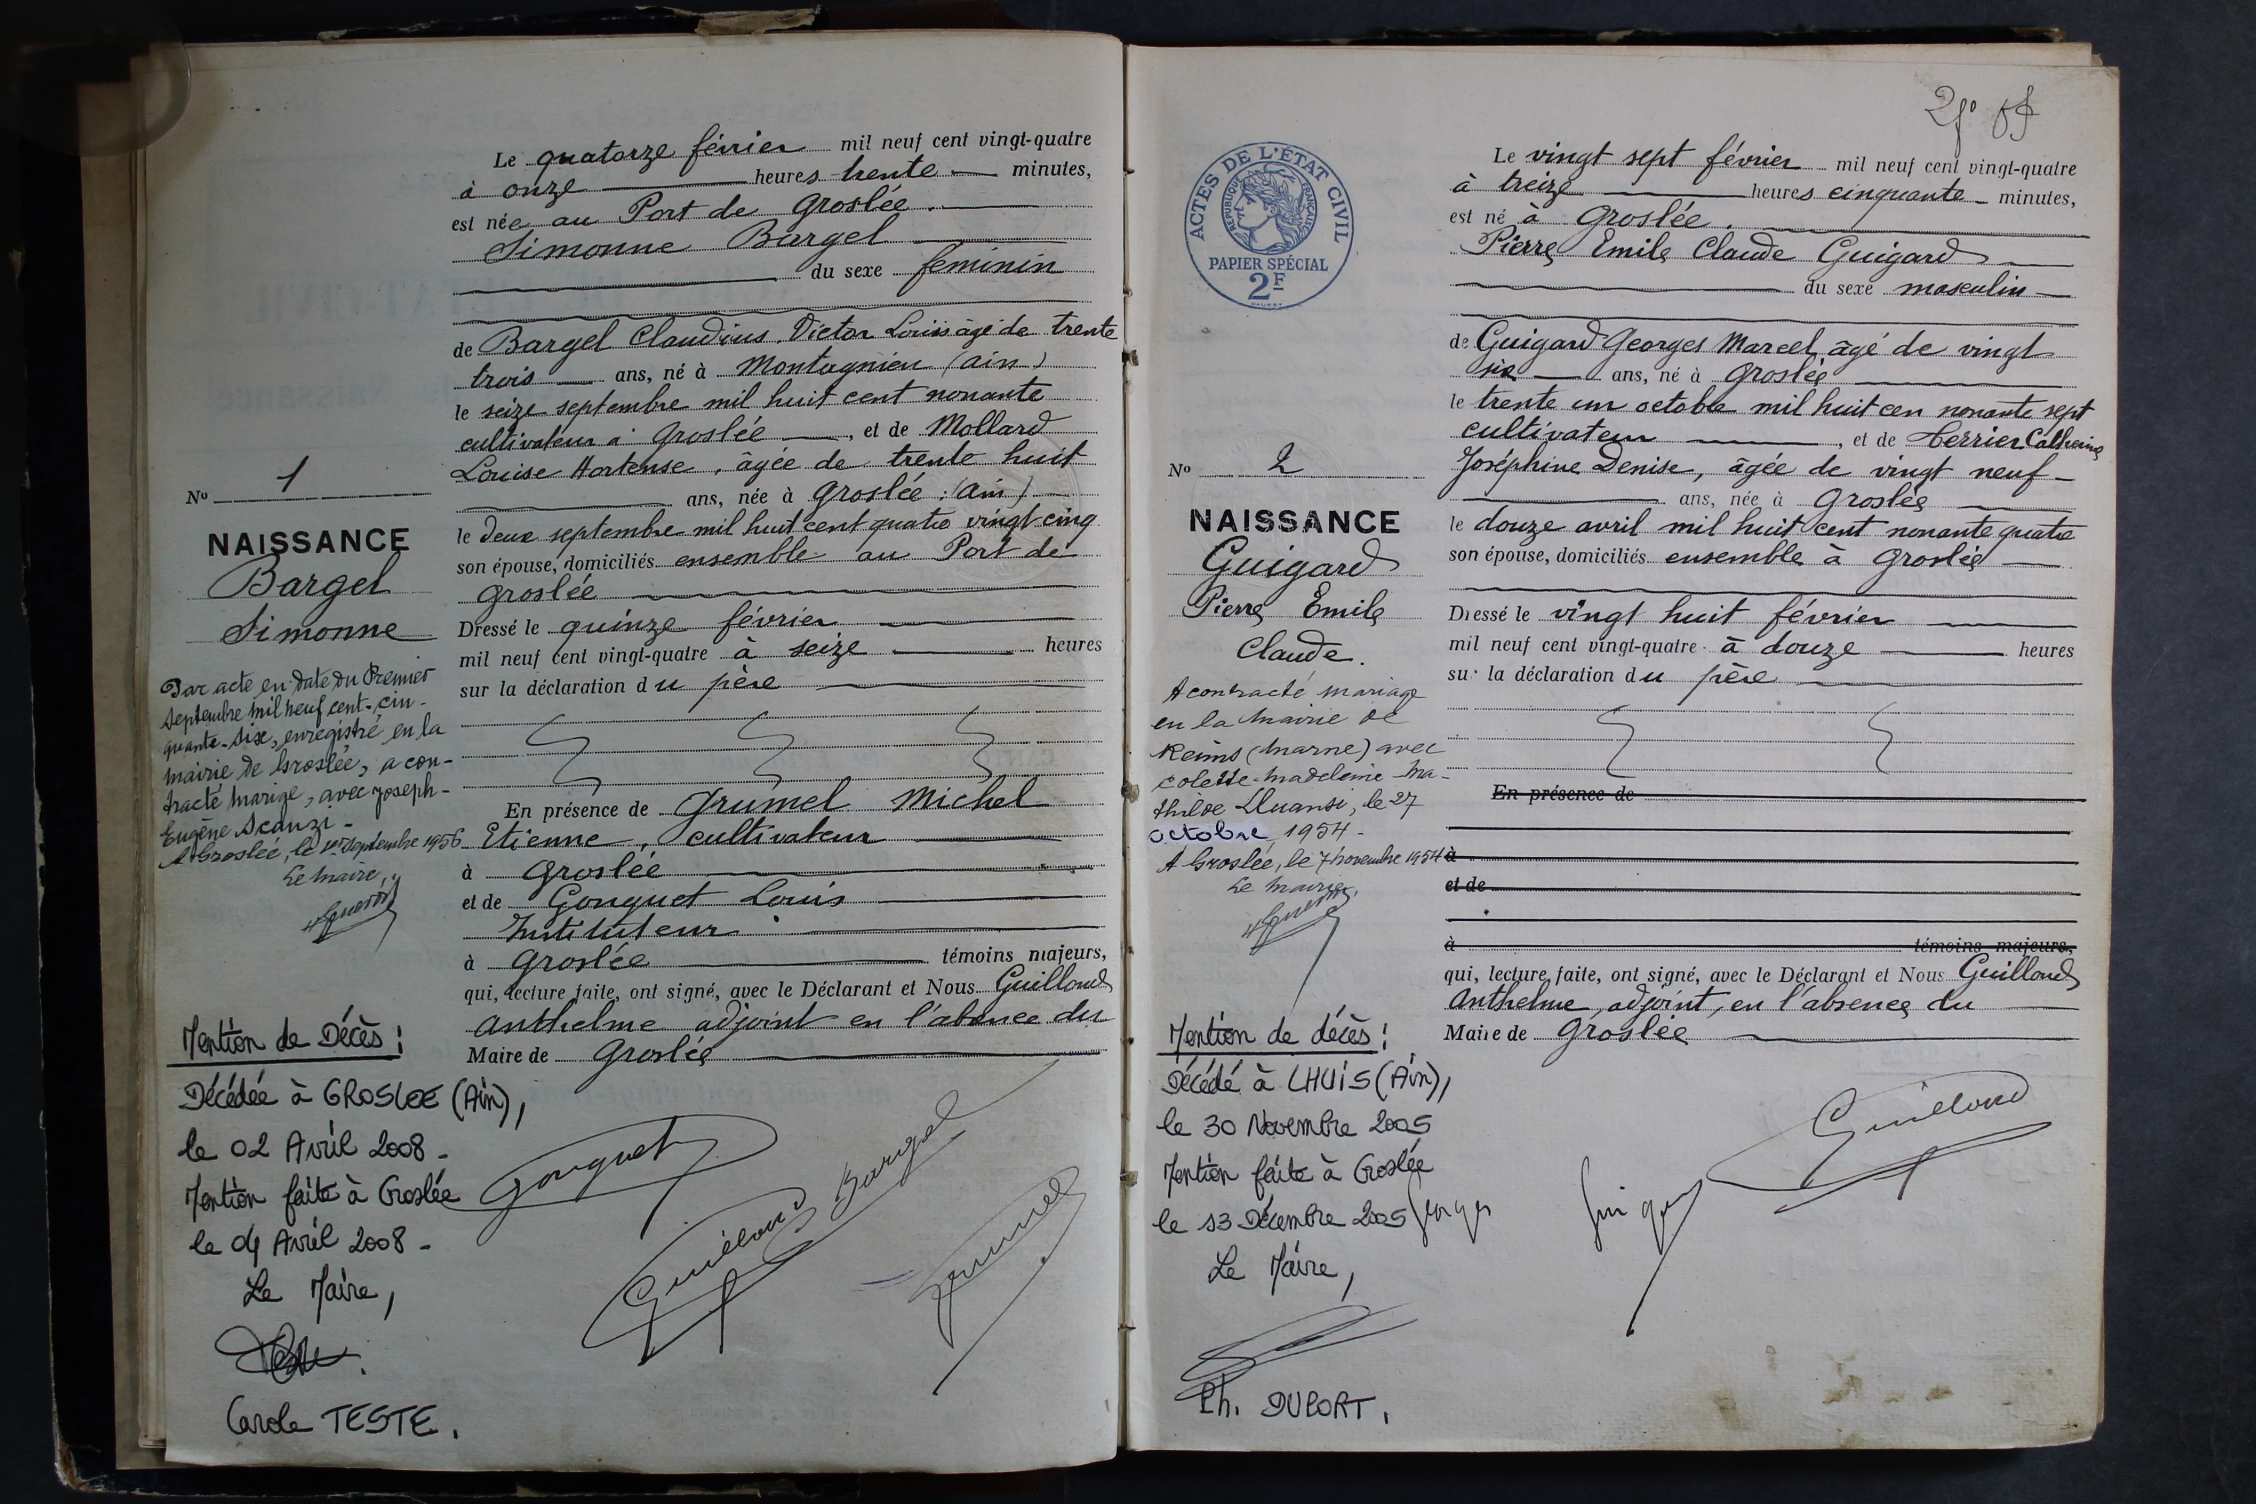 Le quatorze février mil neuf cent vingt-quatre
à onze heures trente minutes,
est née au Port de Groslée.
Simonne Bargel
du sexe feminin
de Bargel Claudius Victor Louis âgé de trente
trois ans, né à Montagnieu (ain)
le seize septembre mil huit cent nonante
cultivateur à Groslée, et de Mollard
Louise Hortense, âgée de trente huit
ans, née à Groslée (ain)
le deux septembre mil huit cent quatre vingt cinq
son épouse, domiciliés ensemble au Port de
Groslée
Dressé le quinze février
mil neuf cent vingt-quatre à seize heures
sur la déclaration du père
En présence de Grumel Michel
Etienne, cultivateur
à Groslée
et de Gonguet Louis
Instituteur
à Groslée témoins majeurs,
qui, lecture faite, ont signé, avec le Déclarant et Nous Guilloud
Anthelme adjoint en l'absence du
Maire de Groslée
Gonguet
Guilloud
Bargel
Grumel
No 1
NAISSANCE
Bargel
Simonne
Par acte en date du Premier
septembre mil neuf cent-cin-
quante-six, enregistré en la
mairie de Groslée, a con-
tracté marige, avec Joseph-
Eugène Scanzi-
A Groslée, le 1er septembre 1956
Le maire,
Mention de Décès :
Décédée à GROSLEE (Ain),
le 02 Avril 2008 -
Mention faite à Groslée
le 04 Avril 2008 -
Le Maire,
Carole TESTE.
2
ACTES DE L'ÉTAT CIVIL
RÉPUBLIQUE FRANÇAISE
PAPIER SPÉCIAL
2F
Le vingt sept février mil neuf cent vingt-quatre
à treize heures cinquante minutes,
est né à Groslée.
Pierre Emile Claude Guigard
du sexe masculin
de Guigard Georges Marcel, âgé de vingt
six ans, né à Groslée
le trente un octobre mil huit cen nonante sept
cultivateur, et de Terrier Catherine
Joséphine Denise, âgée de vingt neuf
ans, née à Groslée
le douze avril mil huit cent nonante quatre
son épouse, domiciliés ensemble à Groslée
Dressé le vingt huit février
mil neuf cent vingt-quatre à douze heures
sur la déclaration du père
En présence de
à
et de
à témoins majeurs,
qui, lecture faite, ont signé, avec le Déclarant et Nous Guilloud
Anthelme, adjoint, en l'absence du
Maire de Groslée
Guilloud
Georges Guigard
No 2
NAISSANCE
Guigard
Pierre Emile
Claude.
A contracté mariage
en la mairie de
Reims (Marne) avec
Colette-Madeleine-Ma-
thilde Lluansi, le 27
octobre 1954-
A Groslée, le 7 novembre 1954
Le maire,
Mention de décès :
Décédé à LHUIS (Ain),
le 30 Novembre 2005
Mention faite à Groslée
le 13 Décembre 2005
Le Maire,
Ph. DUPORT.